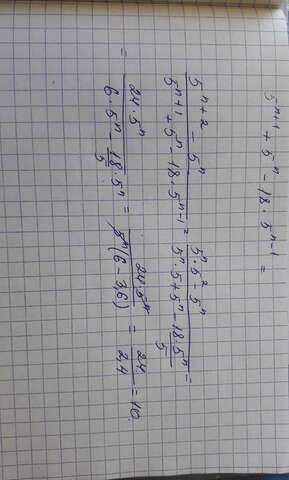 5ⁿ⁺¹ + 5ⁿ - 18 · 5ⁿ⁻¹ =
(5ⁿ⁺² - 5ⁿ)/(5ⁿ⁺¹ + 5ⁿ - 18 · 5ⁿ⁻¹) = (5ⁿ · 5² - 5ⁿ)/(5ⁿ · 5 + 5ⁿ - (18 · 5ⁿ)/5) =
= (24 · 5ⁿ)/(6 · 5ⁿ - (18 · 5ⁿ)/5) = (24 · 5ⁿ)/(5ⁿ(6 - 3,6)) = 24/2,4 = 10.